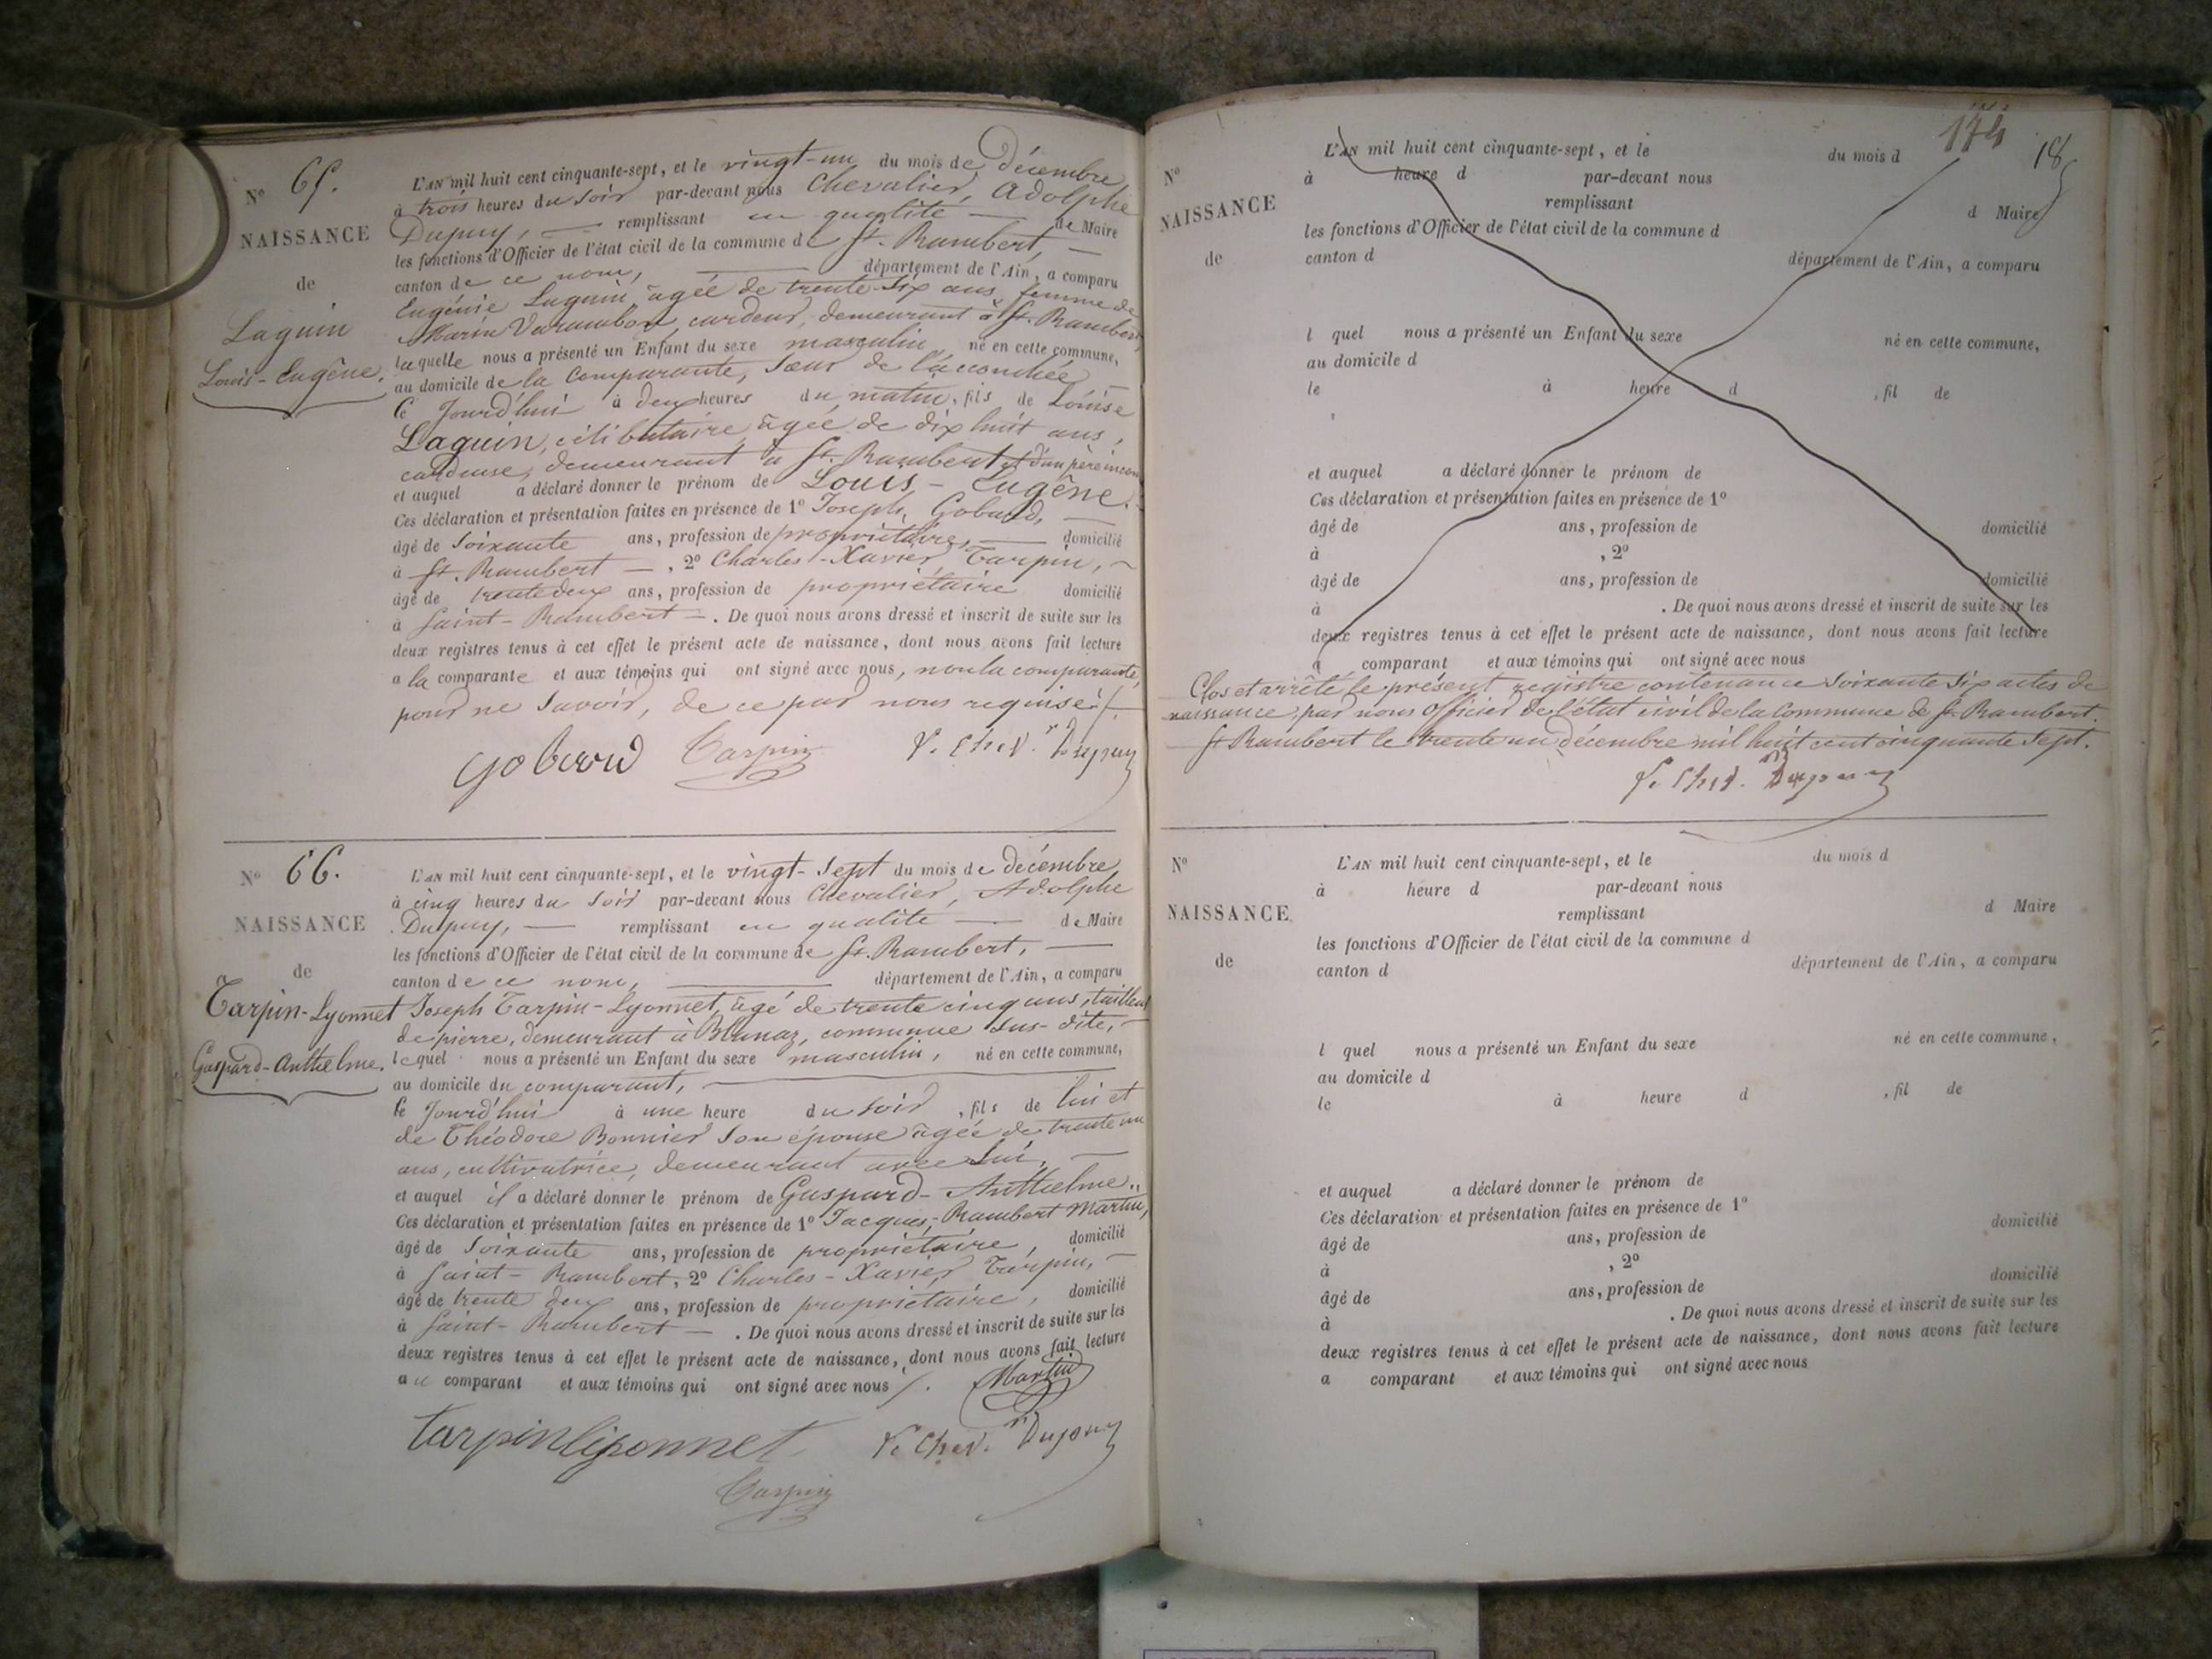 N° 65.
NAISSANCE
de
Laguin
Louis-Eugêne.
L'AN mil huit cent cinquante-sept, et le vingt-un du mois de Décembre
à trois heures du soir par-devant nous Chevalier, Adolphe
Dupuy, — remplissant en qualité — de Maire
les fonctions d'Officier de l'état civil de la commune de St. Rambert, —
canton de ce nom, — département de l'Ain, a comparu
Eugénie Laguin, âgée de trente-six ans, femme de
Marin Varambon, cardeur, demeurant à St. Rambert,
laquelle nous a présenté un Enfant du sexe masculin, né en cette commune,
au domicile de la Comparante, sœur de l'accouchée
le Jourd'hui à deux heures du matin, fils de Louise
Laguin, célibataire, âgée de dix huit ans,
cardeuse, demeurant à St. Rambert et d'un père incon
et auquel a déclaré donner le prénom de Louis-Eugêne.
Ces déclaration et présentation faites en présence de 1° Joseph, Gobaud, —
âgé de soixante ans, profession de propriétaire, — domicilié
à St. Rambert —, 2° Charles-Xavier Tarpin, —
âgé de trente deux ans, profession de propriétaire domicilié
à Saint-Rambert —. De quoi nous avons dressé et inscrit de suite sur les
deux registres tenus à cet effet le présent acte de naissance, dont nous avons fait lecture
a la comparante et aux témoins qui ont signé avec nous, non la comparante,
pour ne savoir, de ce par nous requise./.
Tarpin Dupuy
N° 66.
NAISSANCE
de
Tarpin-Lyonnet
Gaspard-Anthelme.
L'AN mil huit cent cinquante-sept, et le vingt-sept du mois de décembre
à cinq heures du soir par-devant nous Chevalier, Adolphe
Dupuy, — remplissant en qualité — de Maire
les fonctions d'Officier de l'état civil de la commune de St. Rambert, —
canton de ce nom, — département de l'Ain, a comparu
Joseph Tarpin-Lyonnet, âgé de trente cinq ans, tailleur
de pierre, demeurant à Blanaz, commune sus-dite, —
lequel nous a présenté un Enfant du sexe masculin, né en cette commune,
au domicile du comparant, —
le Jourd'hui à une heure du soir, fils de lui et
de Théodore Bonnier son épouse âgée de trente un
ans, cultivatrice, demeurant avec lui, —
et auquel il a déclaré donner le prénom de Gaspard-Anthelme..
Ces déclaration et présentation faites en présence de 1° Jacques-Rambert Martin,
âgé de soixante ans, profession de propriétaire, domicilié
à Saint-Rambert, 2° Charles-Xavier Tarpin, —
âgé de trente deux ans, profession de propriétaire, domicilié
à Saint-Rambert —. De quoi nous avons dressé et inscrit de suite sur les
deux registres tenus à cet effet le présent acte de naissance, dont nous avons fait lecture
au comparant et aux témoins qui ont signé avec nous /.
Martin
Tarpin Liyonnet Dupuy
Tarpin
174 18
N°
NAISSANCE
de
L'AN mil huit cent cinquante-sept, et le du mois d
à heure d par-devant nous
remplissant d Maire
les fonctions d'Officier de l'état civil de la commune d
canton d département de l'Ain, a comparu
l quel nous a présenté un Enfant du sexe né en cette commune,
au domicile d
le à heure d , fil de
,
et auquel a déclaré donner le prénom de
Ces déclaration et présentation faites en présence de 1°
âgé de ans, profession de domicilié
à , 2°
âgé de ans, profession de domicilié
à . De quoi nous avons dressé et inscrit de suite sur les
deux registres tenus à cet effet le présent acte de naissance, dont nous avons fait lecture
a comparant et aux témoins qui ont signé avec nous
Clos et arrêté le présent registre contenance soixante six actes de
naissance, par nous Officier de l'état civil de la Commune de St. Rambert.
St Rambert le trente un décembre mil huit cent cinquante sept.
Dupuy
N°
NAISSANCE
de
L'AN mil huit cent cinquante-sept, et le du mois d
à heure d par-devant nous
remplissant d Maire
les fonctions d'Officier de l'état civil de la commune d
canton d département de l'Ain, a comparu
l quel nous a présenté un Enfant du sexe né en cette commune,
au domicile d
le à heure d , fil de
et auquel a déclaré donner le prénom de
Ces déclaration et présentation faites en présence de 1°
âgé de ans, profession de domicilié
à , 2°
âgé de ans, profession de domicilié
à . De quoi nous avons dressé et inscrit de suite sur les
deux registres tenus à cet effet le présent acte de naissance, dont nous avons fait lecture
a comparant et aux témoins qui ont signé avec nous